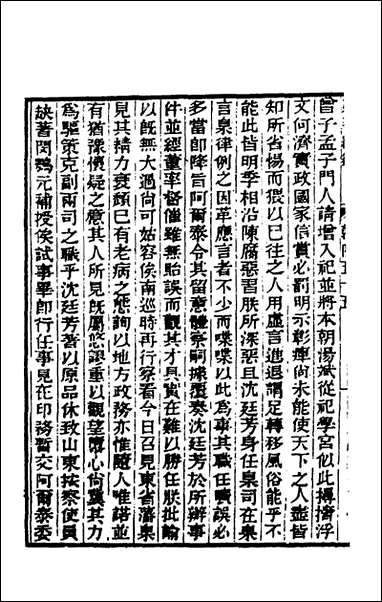 曾子孟子門人請增入祀並將本朝湯斌從祀學宮似此搏撦浮
文何濟實政國家信賞必罰明示彰癉尚未能使天下之人盡皆
知所省惕而猥以已往之人用虛言進退謂足轉移風俗能乎不
能此皆明季相沿陳腐惡習朕所深惡且沈廷芳身任臬司在臬
言臬律例之因革應言者不少而喋喋以此為事其職任曠誤必
多當即降旨阿爾泰令其留意體察嗣據覆奏沈廷芳於所辦事
件並經董率督催雖無貽誤而觀其才具實在難以勝任朕批諭
以既無大過尚可姑容俟南巡時再行察看今日召見東省藩臬
見其精力衰頹已有老病之態詢以地方政務亦惟隨人唯諾並
有猶豫懷疑之意其人所見既屬悠謬重以觀望墮心尚冀其力
為驅策克副兩司之職乎沈廷芳著以原品休致山東按察使員
缺著閔鶚元補授俟試事畢即行任事見在印務暫交阿爾泰委